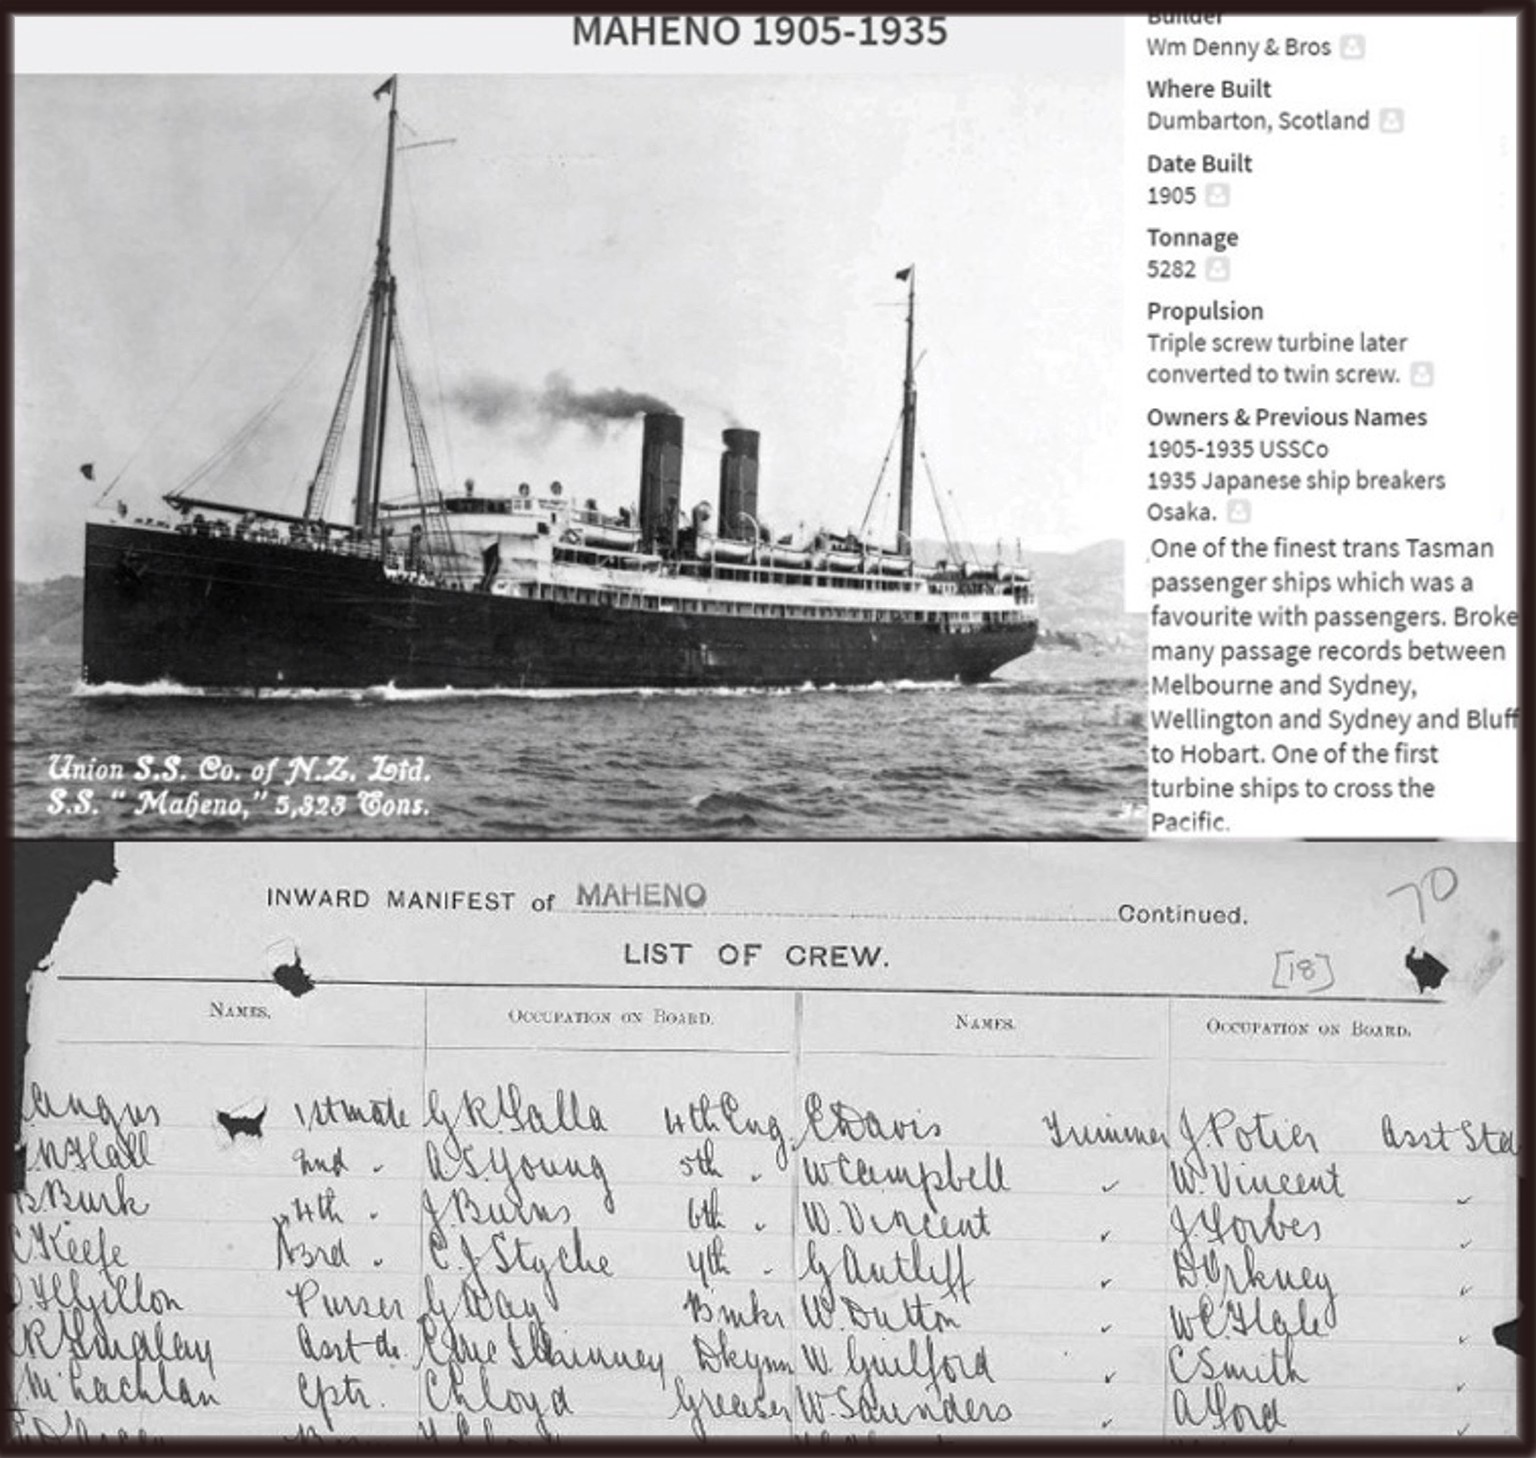 MAHENO 1905-1935
Builder
Wm Denny & Bros
Where Built
Dumbarton, Scotland
Date Built
1905
Tonnage
5282
Propulsion
Triple screw turbine later
converted to twin screw.
Owners & Previous Names
1905-1935 USSCo
1935 Japanese ship breakers
Osaka.
One of the finest trans Tasman
passenger ships which was a
favourite with passengers. Broke
many passage records between
Melbourne and Sydney,
Wellington and Sydney and Bluff
to Hobart. One of the first
turbine ships to cross the
Pacific.
Union S.S. Co. of N.Z. Ltd.
S.S. "Maheno," 5,323 Tons.
70
INWARD MANIFEST of MAHENO Continued.
LIST OF CREW.
[18]
NAMES. OCCUPATION ON BOARD. NAMES. OCCUPATION ON BOARD.
Angus 1st mate G R Halla 4th Eng E Davis Trimmer J. Potier Asst Ste
Hall 2nd A S. Young 5th W Campbell W. Vincent
B. Burk 4th J. Burns 6th W. Vincent J. Forbes
Keefe 3rd C. J Styche 7th G Antliff D Orkney
Purser G Way W. Dutton W C Hale
Asst do. W. Guilford C Smith
McLachlan Cptr. C Lloyd Greaser W. Saunders A Ford